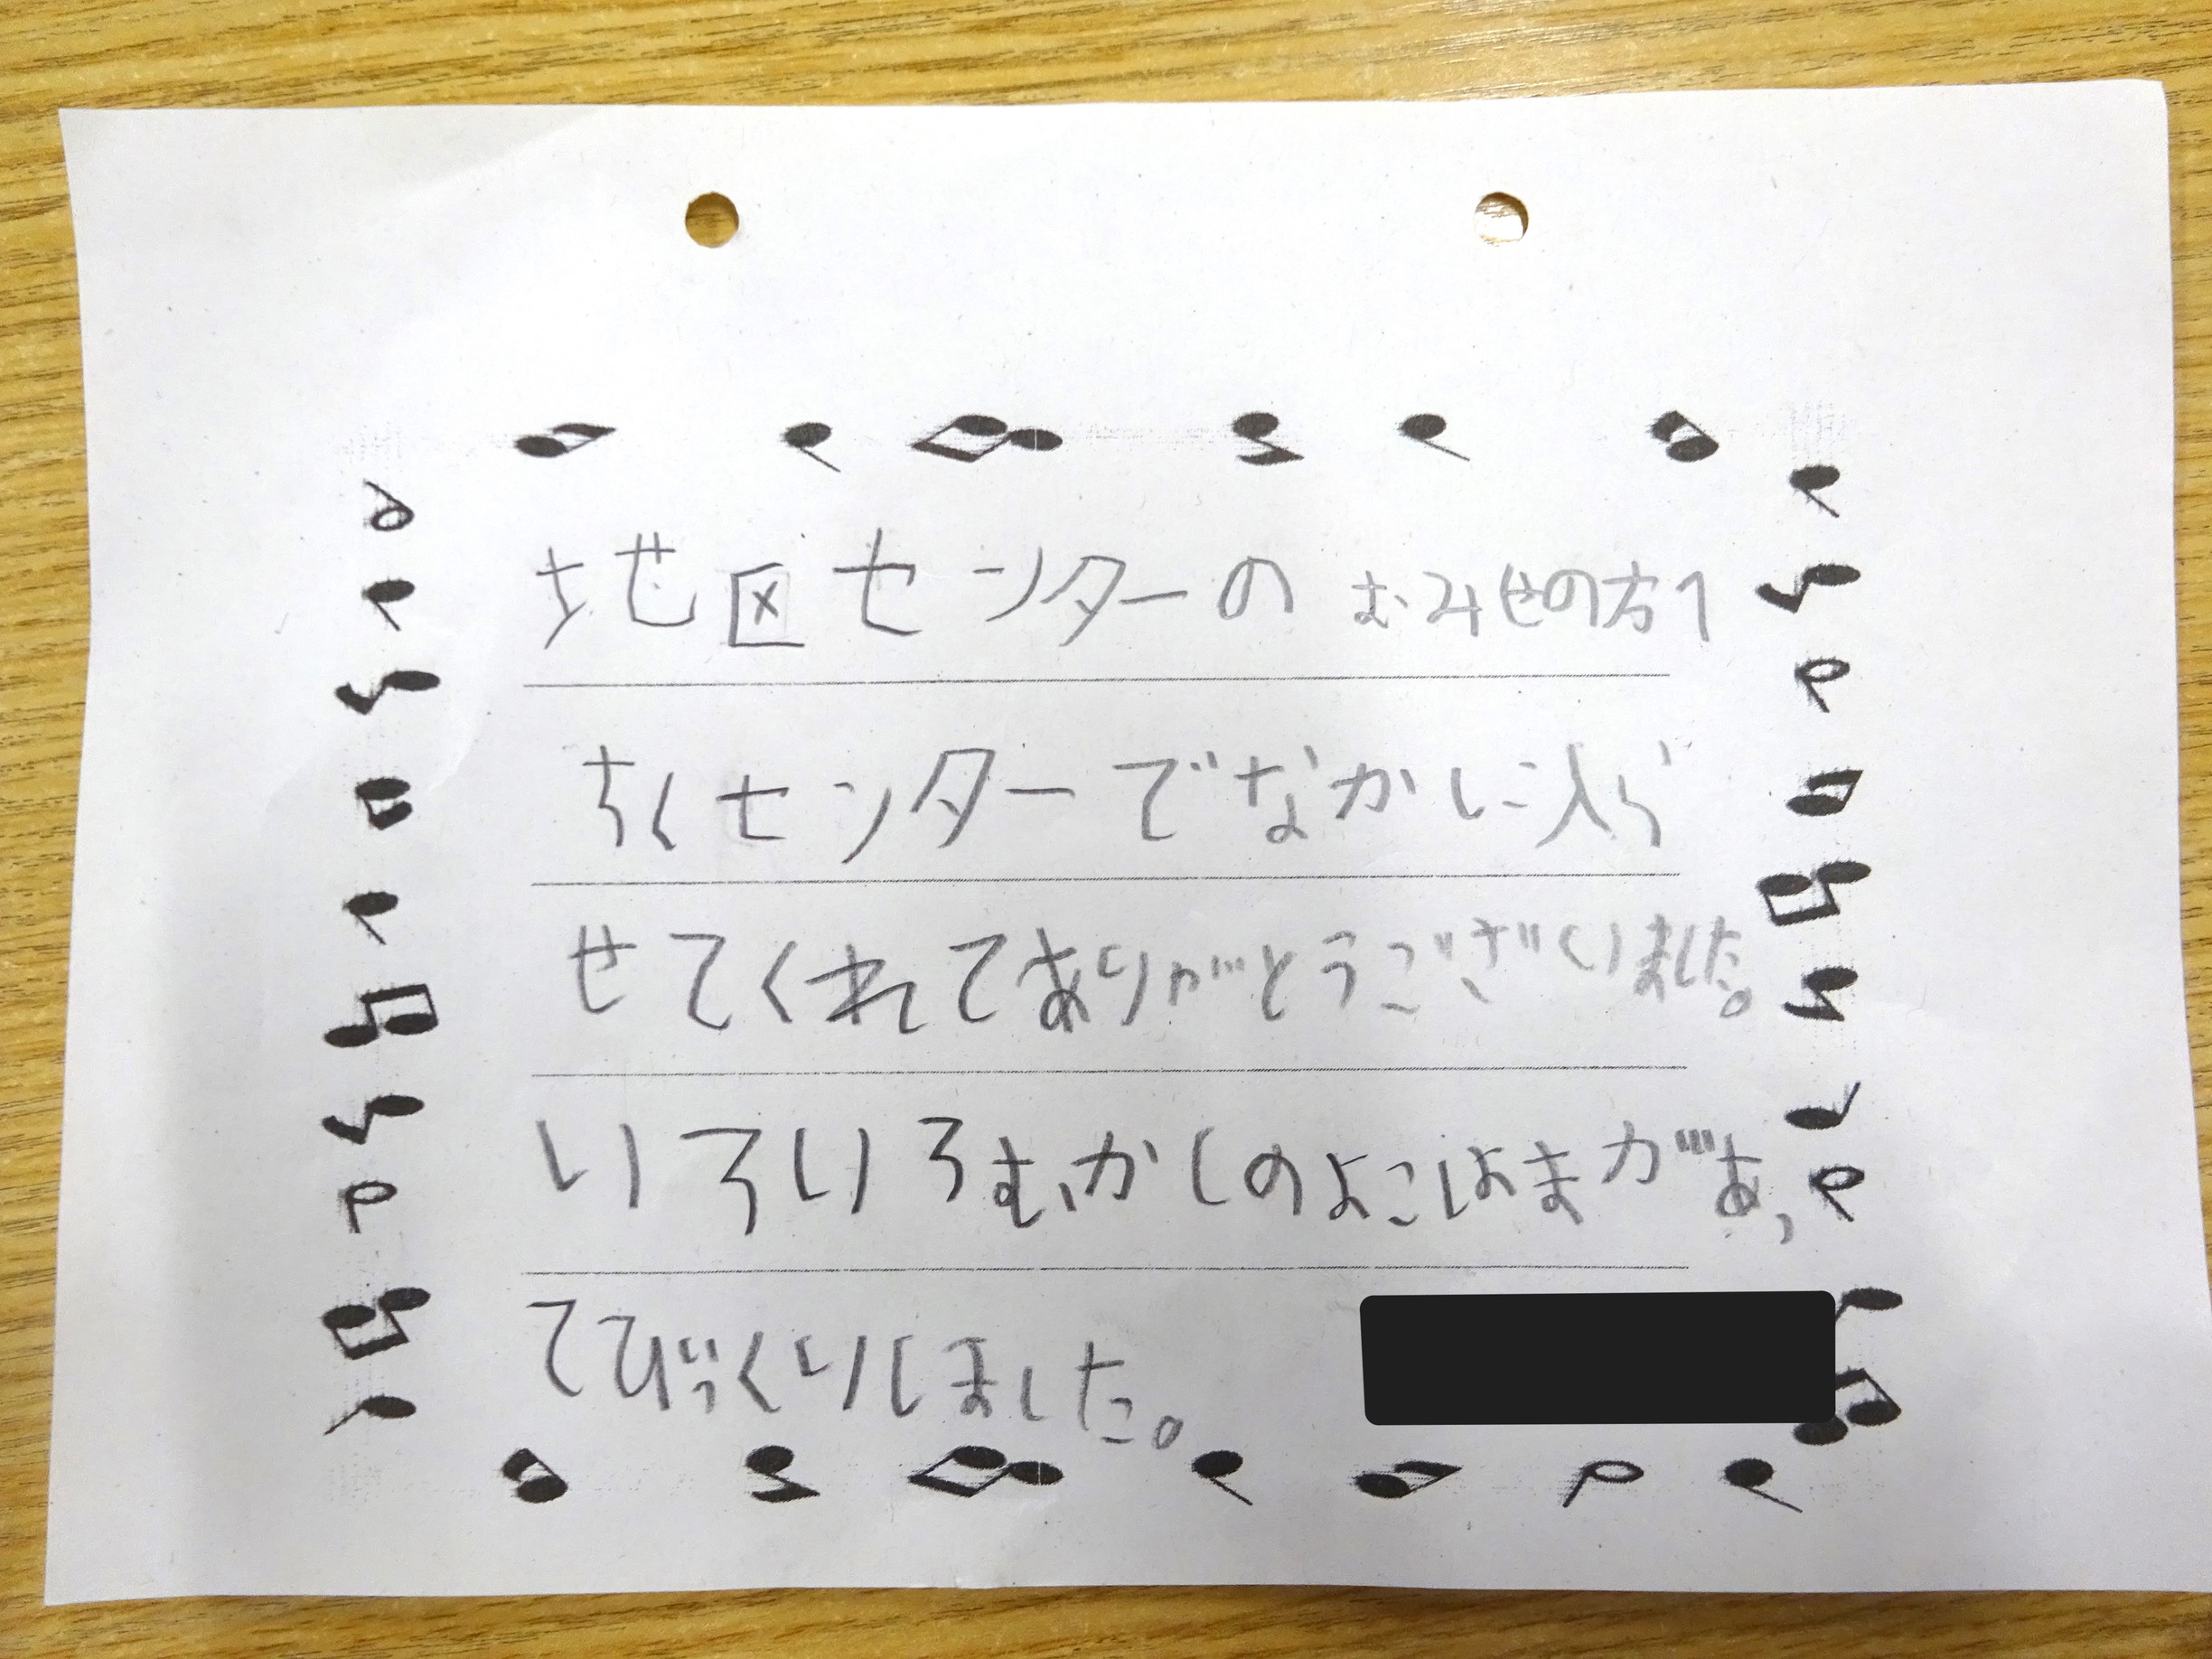 地区センターのおみせの方へ
ちくセンターでなかに入ら
せてくれてありがとうございました。
いろいろむかしのよこはまがあっ
てびっくりしました。